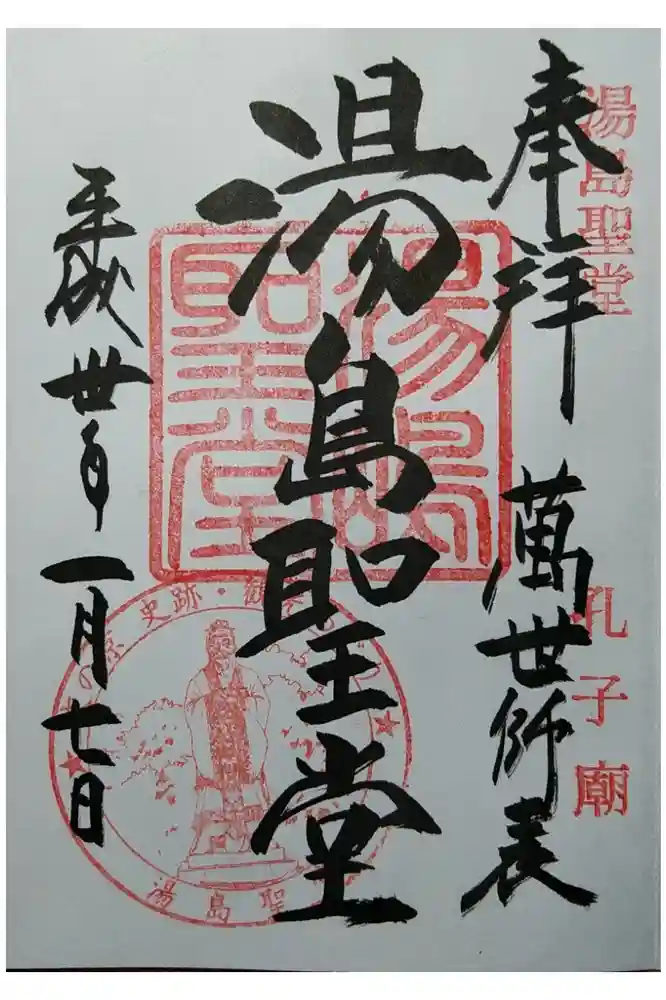 湯島聖堂
孔子廟
奉拝
萬世師表
湯島聖堂
湯島聖堂
平成卅一年一月七日
史跡・
湯島聖